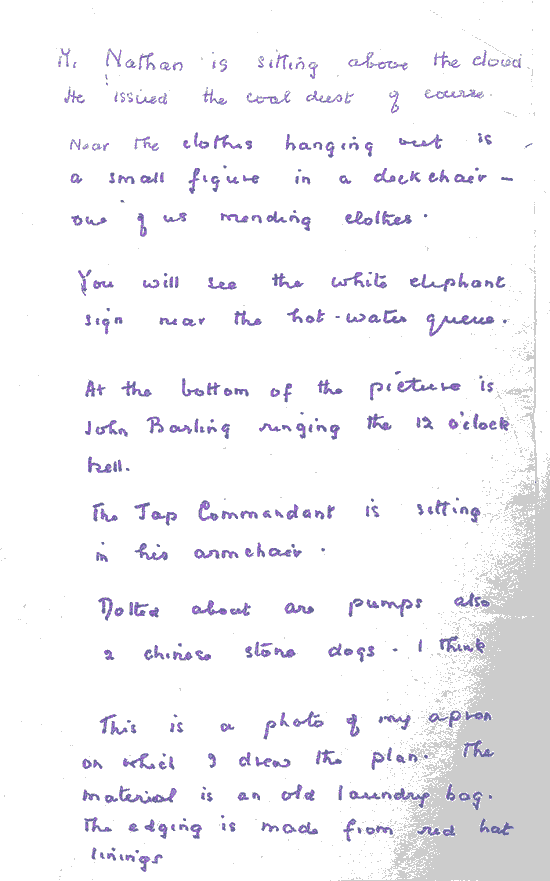 Mr. Nathan is sitting above the cloud.
He issued the coal dust of course.
Near the clothes hanging out is
a small figure in a deckchair –
one of us mending clothes.
You will see the white elephant
sign near the hot-water queue.
At the bottom of the picture is
John Barling ringing the 12 o'clock
bell.
The Jap Commandant is sitting
in his armchair.
Dotted about are pumps also
2 chinese stone dogs. I think
This is a photo of my apron
on which I drew the plan. The
material is an old laundry bag.
The edging is made from red hat
linings